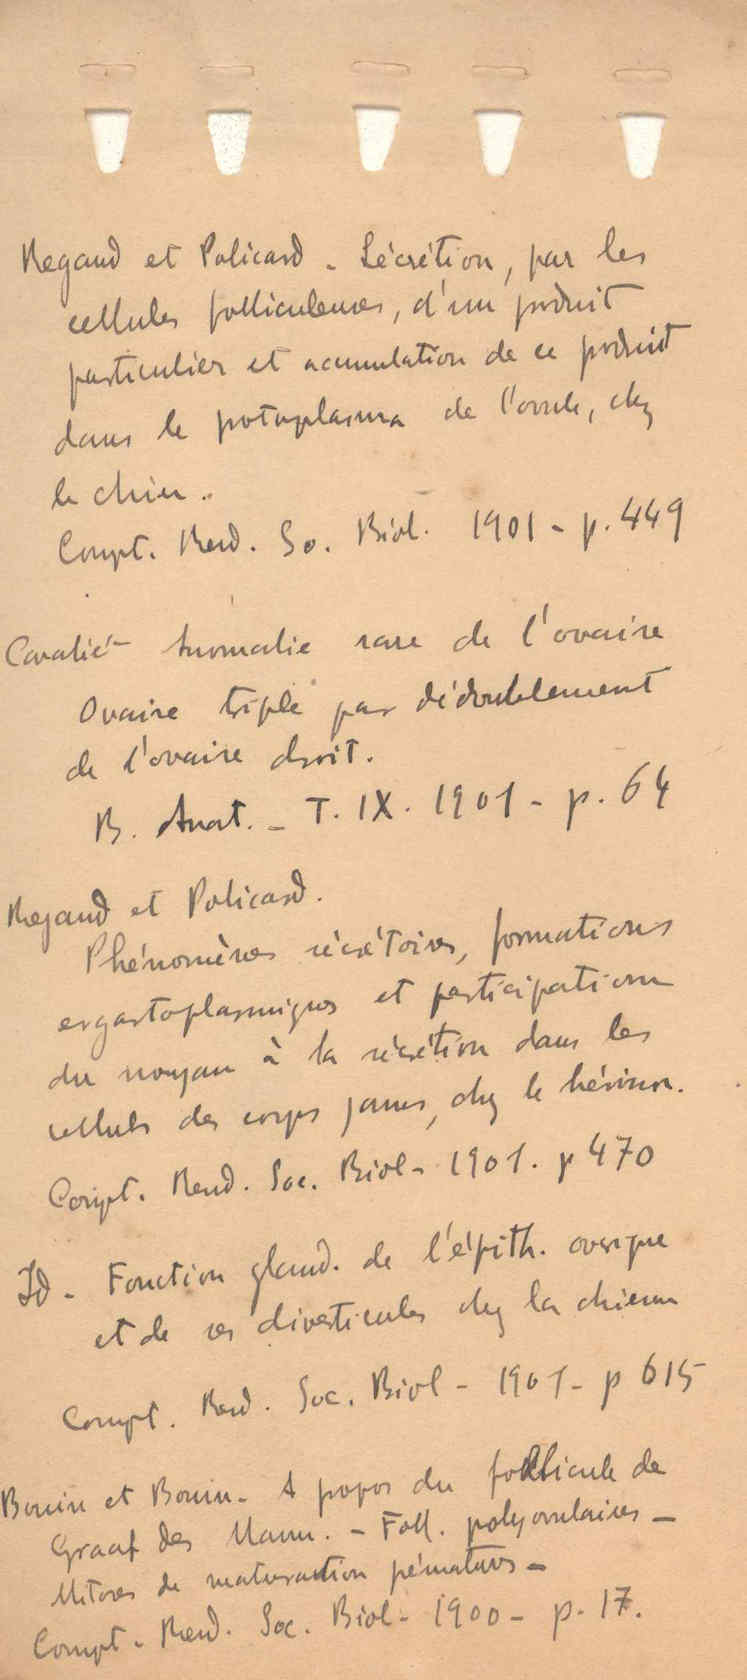 Regaud et Policard - Sécrétion, par les
cellules folliculeuses, d'un produit
particulier et acumulation de ce produit
dans le potoplasma de l'ovule, chez
le chien.
Compt. Rend. So. Biol. 1901 - p. 449
Cavalié - Anomalie rare de l'ovaire
Ovaire triple par dédoublement
de l'ovaire droit.
B. Anat. - T. IX. 1901 - p. 64
Regaud et Policard.
Phénomènes sécrétoires, formations
ergastoplasmiques et participation
du noyau à la sécrétion dans les
cellules des corps jaunes, chez le hérisson.
Compt. Rend. Soc. Biol - 1901. p 470
Id - Fonction gland. de l'épith. ovarique
et de ses diverticules chez la chienne
Compt. Rend. Soc. Biol - 1901 - p 615
Bouin et Bouin - A propos du follicule de
Graaf des Mamm. - Foll. polyovulaires -
Mitoses de maturation prématures -
Compt - Rend. Soc. Biol - 1900 - p. 17.